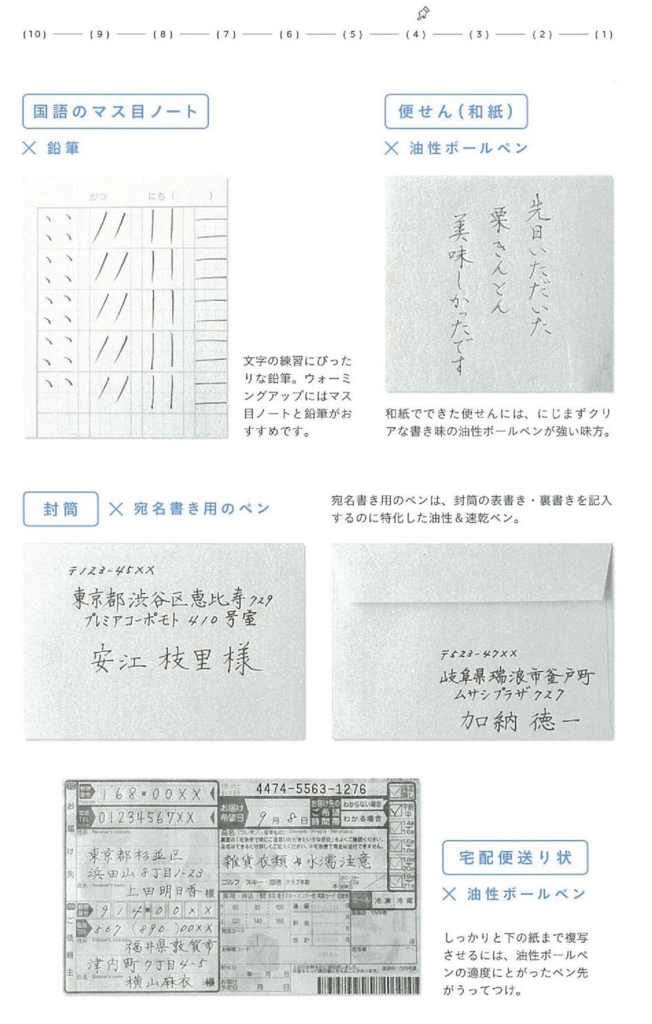 (10) (9) (8) (7) (6) (5) (4) (3) (2) (1)
国語のマス目ノート
× 鉛筆
がつ にち( )
文字の練習にぴった
りな鉛筆。ウォーミ
ングアップにはマス
目ノートと鉛筆がお
すすめです。
便せん(和紙)
× 油性ボールペン
先日いただいた
栗きんとん
美味しかったです
和紙でできた便せんには、にじまずクリ
アな書き味の油性ボールペンが強い味方。
封筒 × 宛名書き用のペン
宛名書き用のペンは、封筒の表書き・裏書きを記入
するのに特化した油性&速乾ペン。
〒123-45XX
東京都渋谷区恵比寿729
プレミアコーポモト 410号室
安江 枝里 様
〒523-47XX
岐阜県瑞浪市釜戸町
ムサシプラザ727
加納 徳一
4474-5563-1276
168-00XX
01234567XX
お届け先
東京都杉並区
浜田山8丁目1-23
上田明日香 様
ご依頼主
914-00XX
567(890)00XX
福井県敦賀市
津内町7丁目4-5
横山麻衣 様
お届け
希望日
9月8日
お届け先の
ご希望
時間帯
わからない場合
わかる場合
品名
雑貨衣類 水濡注意
ゴルフ・スキー・空港
クール 冷凍 冷蔵
宅配便送り状
× 油性ボールペン
しっかりと下の紙まで複写
させるには、油性ボールペ
ンの適度にとがったペン先
がうってつけ。